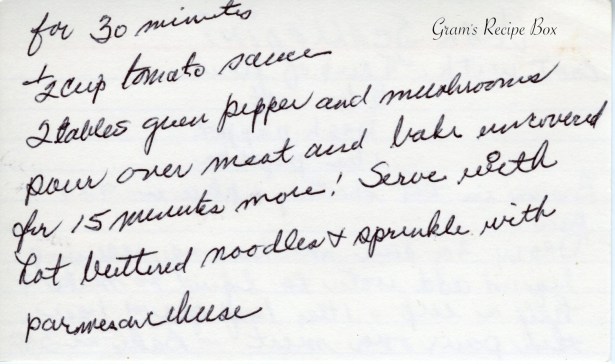 Gram's Recipe Box
for 30 minutes
1/2 cup tomato sauce
2 tables green pepper and mushrooms
pour over meat and bake uncovered
for 15 minutes more! Serve with
hot buttered noodles & sprinkle with
parmesan cheese